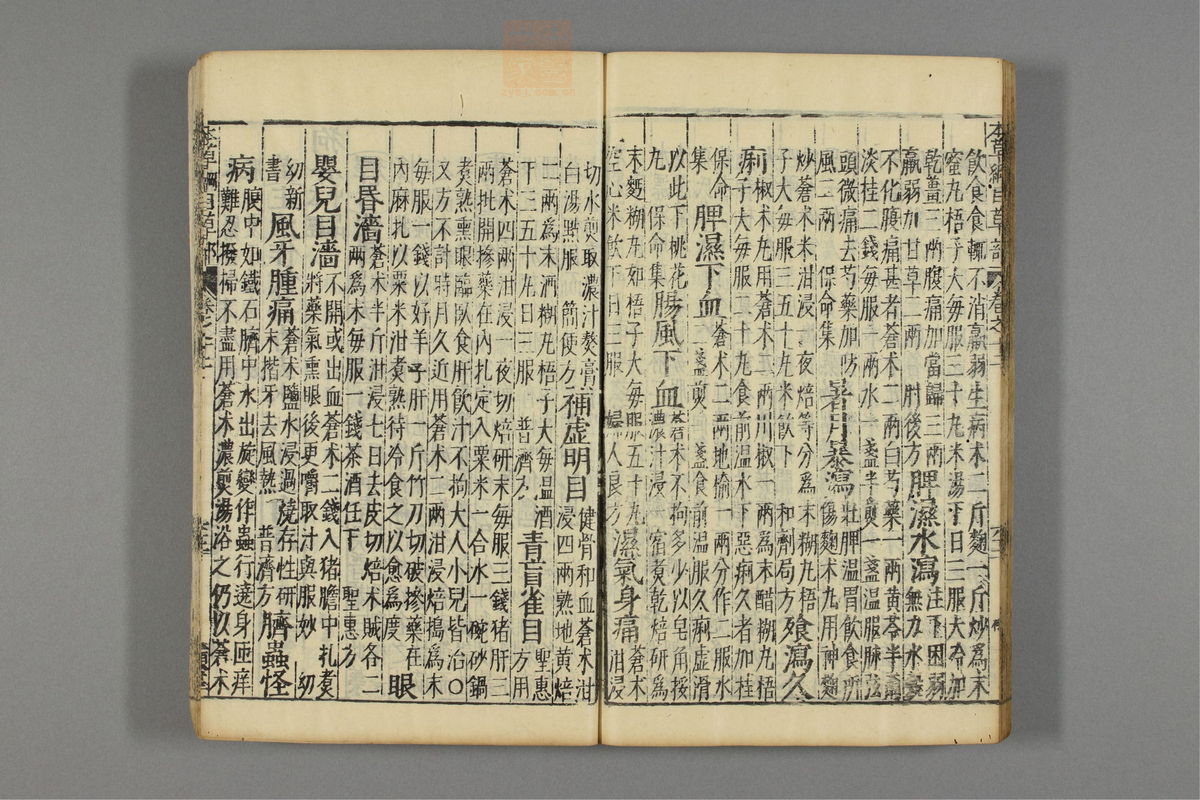 飲食食輒不消羸弱生病朮二斤麴一斤炒爲末
蜜丸梧子大每服三十丸米湯下日三服大冷加
乾薑三兩腹痛加當歸三兩
羸弱加甘草二兩 肘後方
脾濕水瀉
注下困弱
無力水穀
不化腹痛甚者蒼朮二兩白芍藥一兩黃芩半兩
淡桂二錢每服一兩水一盞半煎一盞溫服脉弦
頭微痛去芍藥加防
風二兩 保命集
暑月暴瀉
壯脾溫胃飲食所
傷麴朮丸用神麴
炒蒼朮米泔浸一夜焙等分爲末糊丸梧
子大每服三五十丸米飲下 和劑局方
飱瀉久
痢
椒朮丸用蒼朮二兩川椒一兩爲末醋糊丸梧
子大每服二十丸食前温水下惡痢久者加桂
保命
集
脾濕下血
蒼朮二兩地榆一兩分作二服水
二盞煎一盞食前温服久痢虛滑
以此下桃花
丸 保命集
腸風下血
蒼朮不拘多少以皂角挼
濃汁浸一宿煮乾焙研爲
末麵糊丸如梧子大每服五十丸
空心米飲下日三服 婦人良方
濕氣身痛
蒼朮
泔浸
切水煎取濃汁熬膏
白湯點服 簡便方
補虛明目
健骨和血蒼朮泔
浸四兩熟地黄焙
二兩爲末酒糊丸梧子大每温酒
下三五十丸日三服 普濟方
青盲雀目
聖惠
方用
蒼朮四兩泔浸一夜切焙研末每服三錢猪肝三
兩批開摻藥在內扎定入粟米一合水一碗砂鍋
煮熟熏眼臨臥食肝飲汁不拘大人小兒皆治○
又方不計時月久近用蒼朮二兩泔浸焙搗爲末
每服一錢以好羊子肝一斤竹刀切破摻藥在
內麻扎以粟米泔煮熟待冷食之以愈爲度
眼
目昏濇
蒼朮半斤泔浸七日去皮切焙木賊各二
兩爲末每服一錢茶酒任下 聖惠方
嬰兒目濇
不開或出血蒼朮二錢入猪膽中扎煮
將藥氣熏眼後更嚼取汁與服妙 幼
幼新
書
風牙腫痛
蒼朮鹽水浸過燒存性研
末揩牙去風熱 普濟方
臍蟲怪
病
腹中如鐵石臍中水出旋變作蟲行遶身匝痒
難忍撥掃不盡用蒼朮濃煎湯浴之仍以蒼朮
本草綱目草部
卷之十二
zysj.com.cn